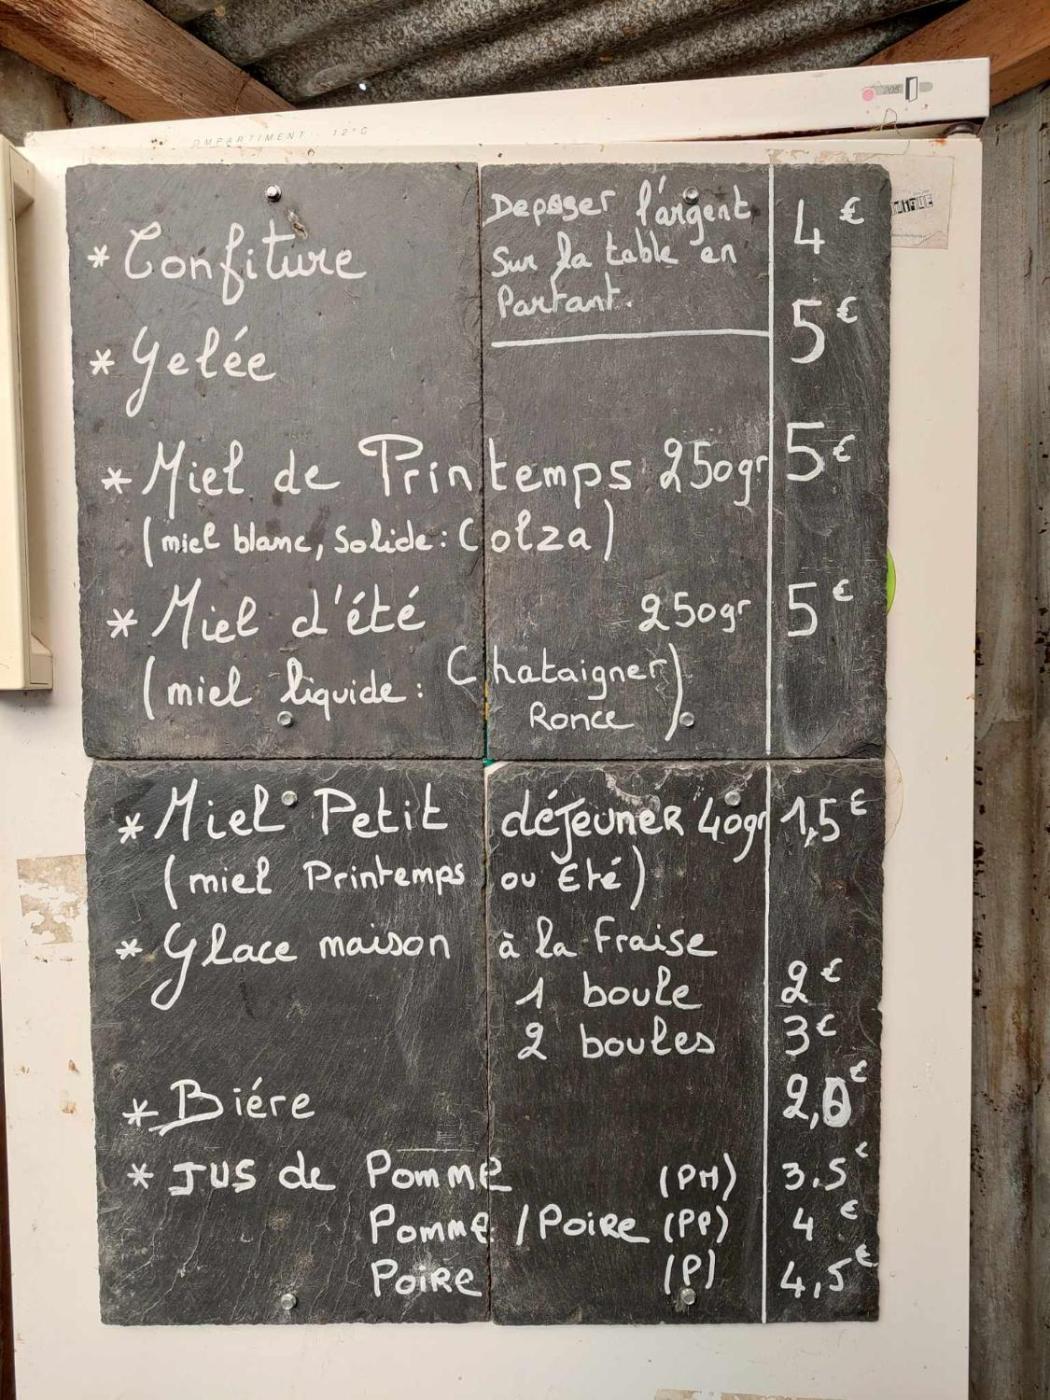 OMPARTIMENT 12°C
Deposer l'argent
sur la table en
Partant.
* Confiture 4€
* Gelée 5€
* Miel de Printemps 250gr 5€
(miel blanc, Solide : Colza)
* Miel d'été 250gr 5€
(miel liquide : Chataigner
Ronce)
* Miel Petit déjeuner 40gr 1,5€
(miel Printemps ou Eté)
* Glace maison à la fraise
1 boule 2€
2 boules 3€
* Biére €
* Jus de Pomme (PM) 3.5€
Pomme / Poire (PP) 4€
Poire (P) 4,5€